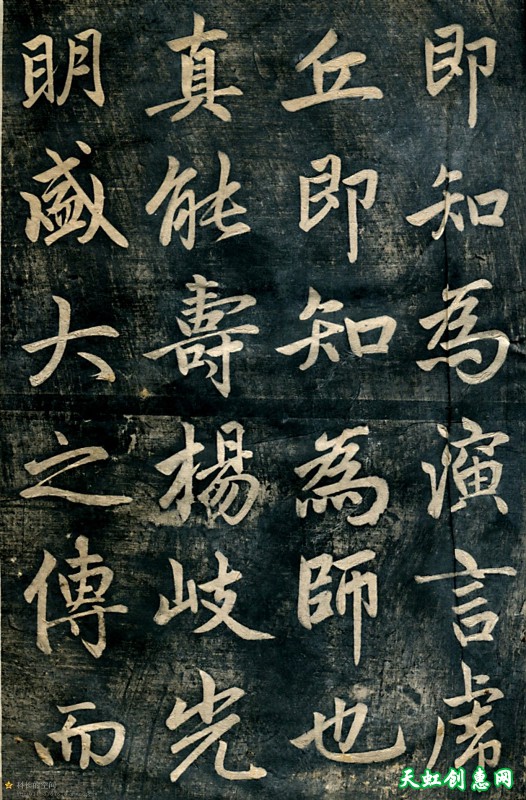 即知為演言虎
丘即知為師也
真能壽楊岐光
明盛大之傳而
天虹创惠网